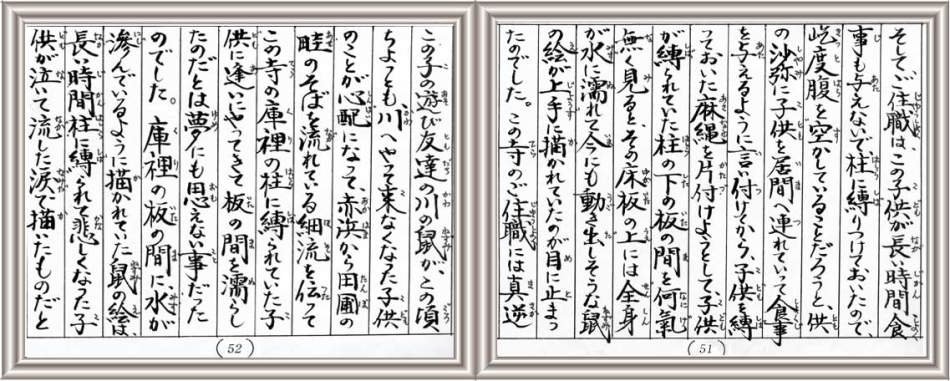 そしてご住職は、この子供が長い時間食
事も与えないで、柱に縛りつけておいたので
屹度腹を空かせていることだろうと、供
の沙弥に子供を居間へ連れていって食事
を与えるように言い付けてから、子供を縛
っておいた麻縄を片付けようとして、子供
が縛られていた柱の下の板の間を何氣
無く見ると、その床板の上には全身
が水に濡れて今にも動き出しそうな鼠
の絵が上手に描かれていたのが目に止まっ
たのでした。この寺のご住職には真逆
(51)
この子の遊び友達の川の鼠が、この頃
ちよっとも川へやって来なくなった子供
のことが心配になって、赤浜から田圃の
畦のそばを流れている細流を伝って
この寺の庫裡の柱に縛られていた子
供に逢いにやってきて板の間を濡らし
たのだとは夢にも思えない事だった
のでした。庫裡の板の間に、水が
滲んでいるように描かれていた鼠の絵は、
長い時間柱に縛られて悲しくなった子
供が泣いて流した涙で描いたものだと
(52)